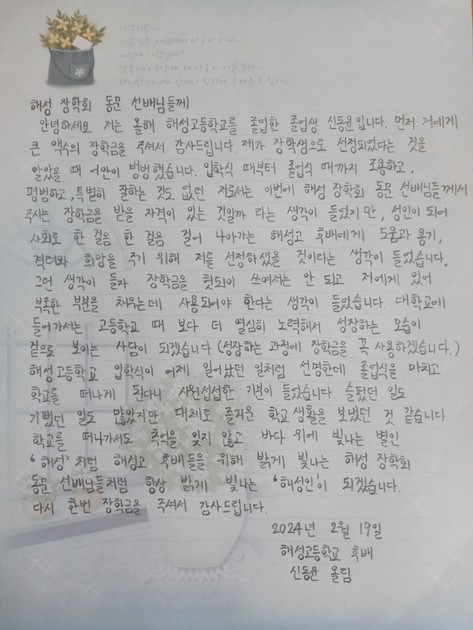 해성 장학회 동문 선배님들께
안녕하세요 저는 올해 해성고등학교를 졸업한 졸업생 신동윤입니다. 먼저 저에게
큰 액수의 장학금을 주셔서 감사드립니다. 제가 장학생으로 선정되었다는 것을
알았을 때 어안이 벙벙했습니다. 입학식 때부터 졸업식 때까지 조용하고,
평범하고, 특별히 잘하는 것도 없던 저로서는 이번에 해성 장학회 동문 선배님들께서
주시는 장학금을 받을 자격이 있는 것일까 라는 생각이 들었지만, 성인이 되어
사회로 한 걸음 한 걸음 걸어 나아가는 해성고 후배에게 도움과 용기,
격려와 희망을 주기 위해 저를 선정하셨을 것이라는 생각이 들었습니다.
그런 생각이 들자 장학금을 헛되이 쓰여서는 안 되고 저에게 있어
부족한 부분을 채우는데 사용되어야 한다는 생각이 들었습니다. 대학교에
들어가서는 고등학교 때 보다 더 열심히 노력해서 성장하는 모습이
겉으로 보이는 사람이 되겠습니다.(성장하는 과정에 장학금을 꼭 사용하겠습니다.)
해성고등학교 입학식이 어제 일어났던 일처럼 선명한데 졸업식을 마치고
학교를 떠나게 된다니 시원섭섭한 기분이 들었습니다 슬펐던 일도
기뻤던 일도 많았지만 대체로 즐거운 학교생활을 보냈던 것 같습니다
학교를 떠나가서도 추억을 잊지 않고 바다 위에 빛나는 별인
'해성'처럼 해성고 후배들을 위해 밝게 빛나는 해성 장학회
동문 선배님들처럼 항상 밝게 빛나는 '해성인'이 되겠습니다.
다시 한번 장학금을 주셔서 감사드립니다.
2024년 2월 19일
해성고등학교 후배
신동윤 올림